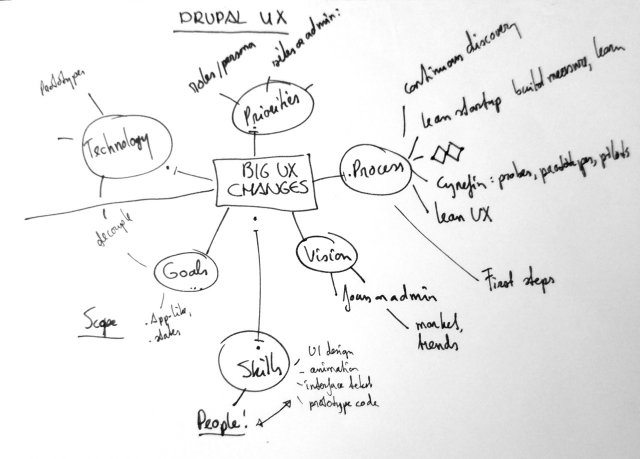 DRUPAL UX
roles/persona
sites or admin:
Priorities
Prototypes
Technology
decouple
BIG UX
CHANGES
Process
continuous discovery
lean startup build measure, learn
Cynefin: probes, prototypes, pilots
lean UX
First steps
Vision
focus on admin
market,
trends
Goals
...
. App-like,
. states
Scope
Skills
UI design
animation
interface text
prototype code
People!